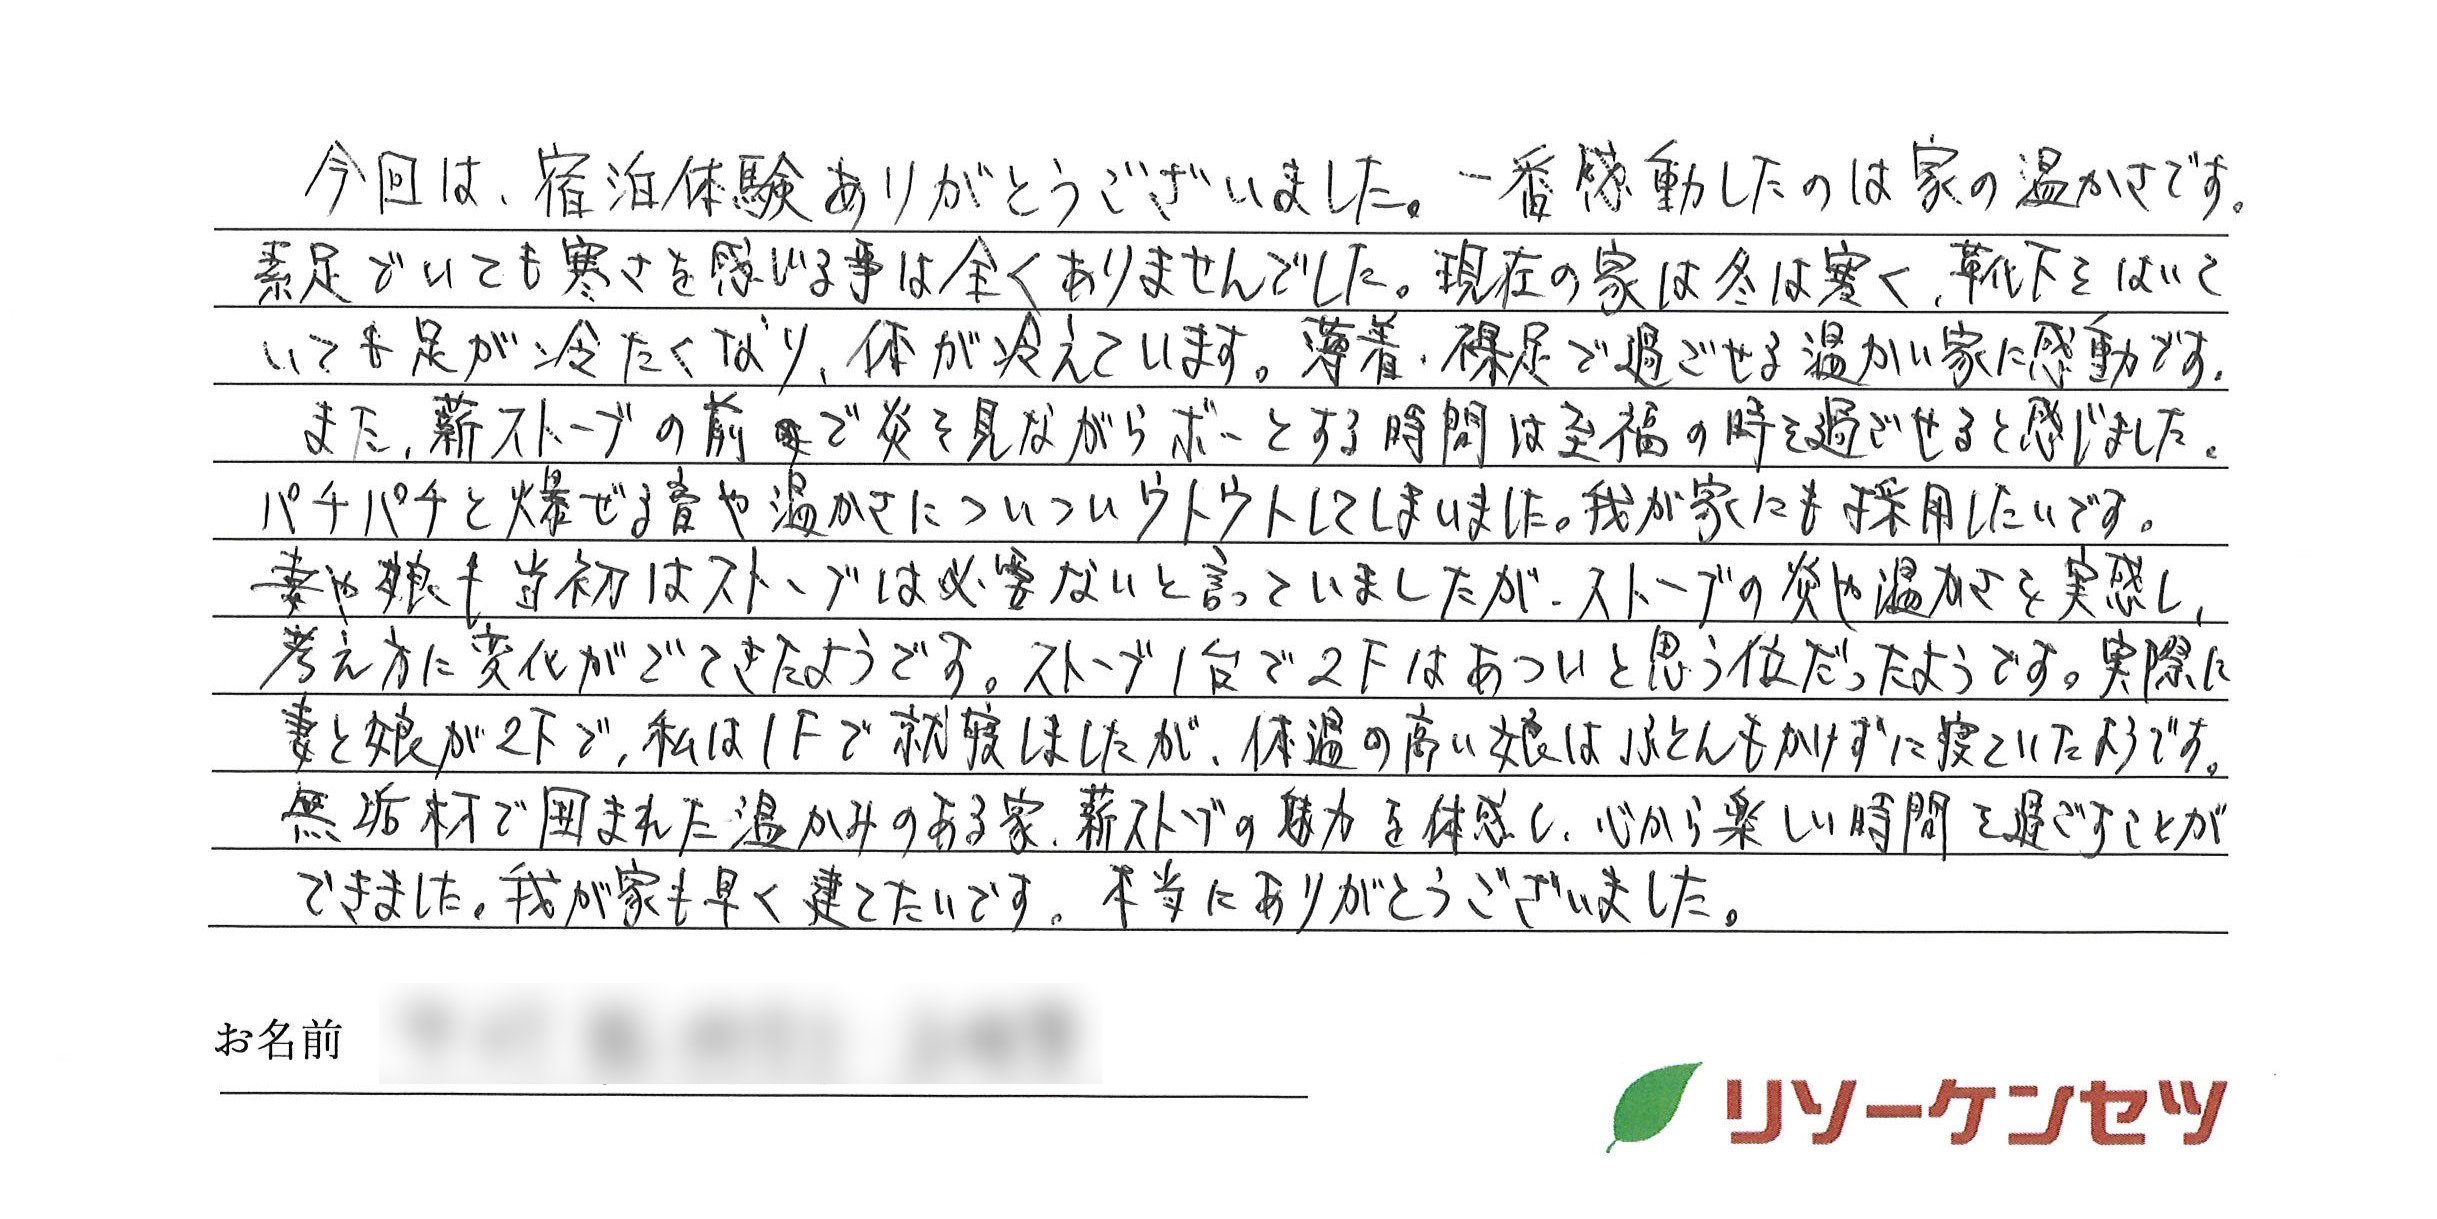 今回は、宿泊体験ありがとうございました。一番感動したのは家の温かさです。
素足でいても寒さを感じる事は全くありませんでした。現在の家は冬は寒く、靴下をはいて
いても足が冷たくなり、体が冷えています。薄着・裸足で過ごせる温かい家に感動です。
また、薪ストーブの前で炎を見ながらボーとする時間は至福の時を過ごせると感じました。
パチパチと爆ぜる音や温かさについついウトウトしてしまいました。我が家にもす採用したいです。
妻や娘も当初はストーブは必要ないと言っていましたが、ストーブの炎や温かさを実感し、
考え方に変化がでてきたようです。ストーブ1台で2Fはあついと思う位だったようです。実際に
妻と娘が2Fで、私は1Fで就寝しましたが、体温の高い娘はふとんもかけずに寝ていたようです。
無垢材で囲まれた温かみのある家、薪ストーブの魅力を体感し、心から楽しい時間を過ごすことが
できました。我が家も早く建てたいです。本当にありがとうございました。
お名前
リソーケンセツ